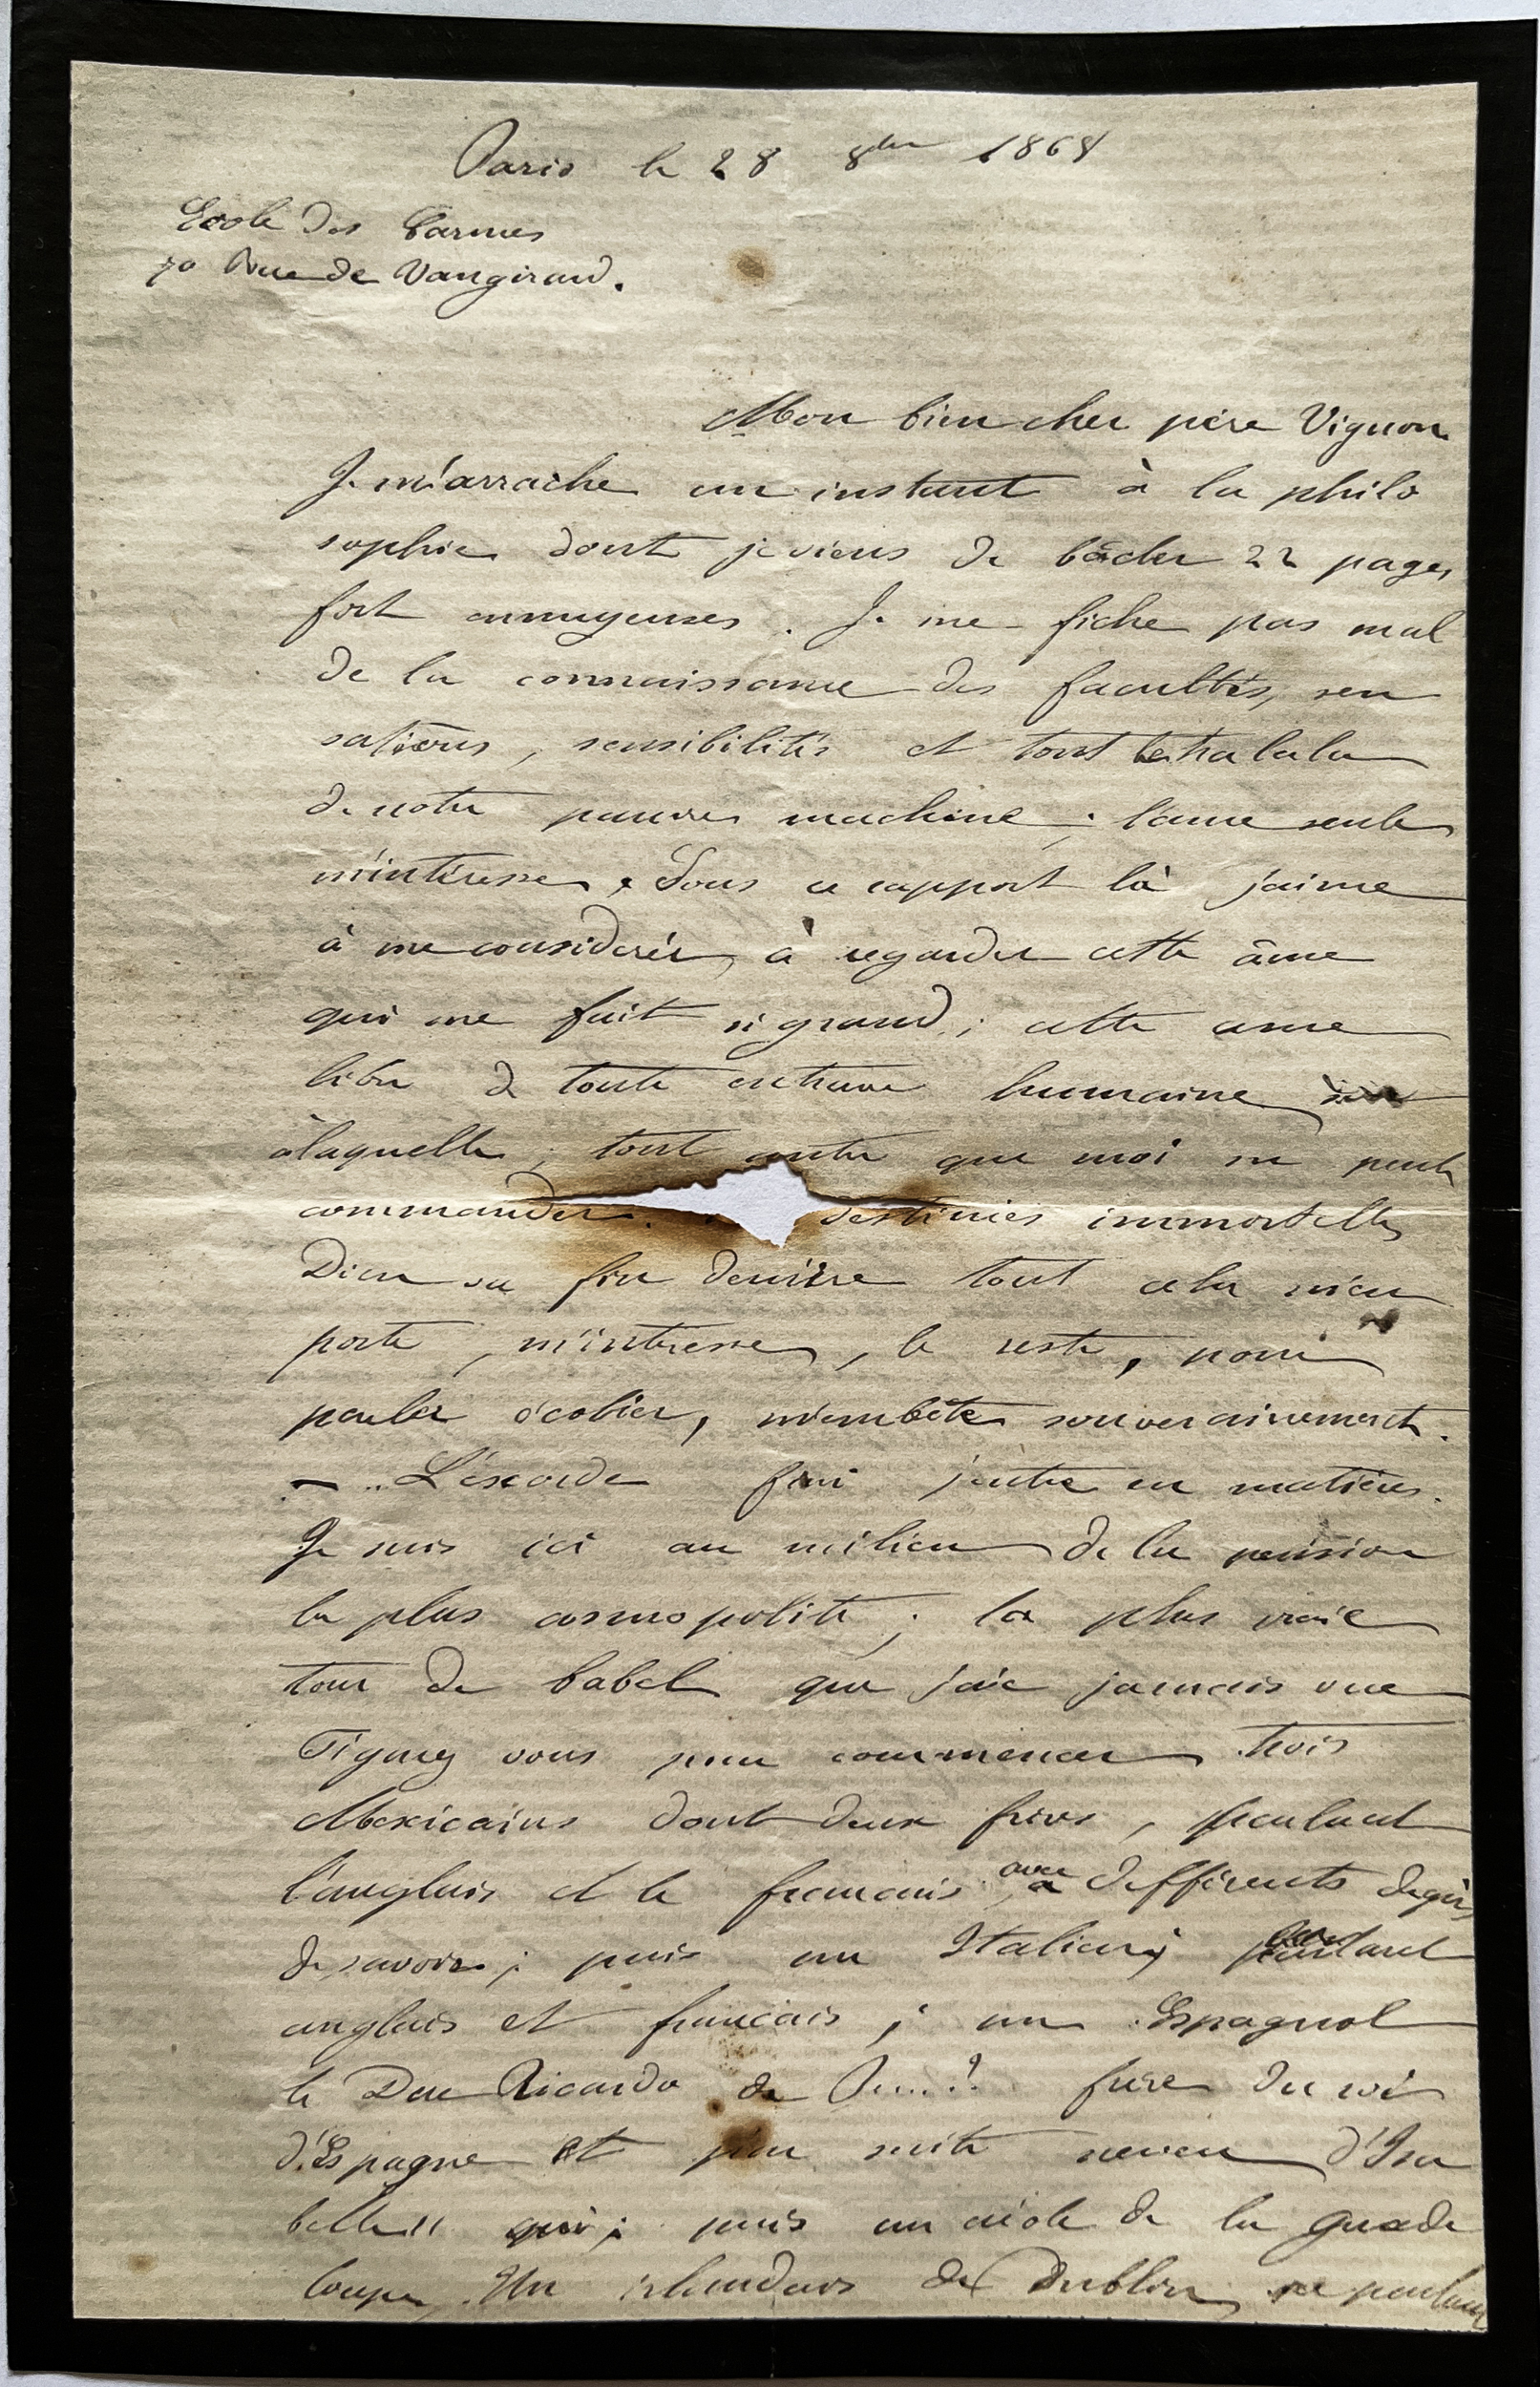 Paris le 28 8bre 1868
Ecole des Carmes
70 Rue de Vaugirard.
Mon bien cher père Vignon
Je m'arrache un instant à la philo
sophie dont je viens de bâcler 22 pages
fort ennuyeuses. Je me fiche pas mal
de la connaissance des facultés, sen
sations, sensibilités et tout le tralala
de notre pauvre machine; l'ame seule
m'intéresse. Sous ce rapport là j'aime
à me considérér, à regarder cette âme
qui me fait si grand; cette ame
libre de toute entrave humaine
à laquelle, tout autre que moi ne peut
commander. destinées immortelles
Dieu sa fin dernière tout cela m'em
porte, m'intéresse, le reste, pour
parler écolier, m'embête souverainement.
— .. L'exorde fini j'entre en matière.
Je suis ici au milieu de la pension
la plus cosmopolite; la plus vraie
tour de babel que j'aie jamais vue
Figurez vous pour commencer trois
Mexicains dont deux frères, parlant
l'anglais et le francais, avec differents degrés
de savoir; puis un Italien; parlant
anglais et francais; un Espagnol
le Duc Ricardo de frere du roi
d'Espagne et par suite neveu d'Isa
belle II; puis un créole de la Guade
loupe. Un irlandais de Dublin ne parlant